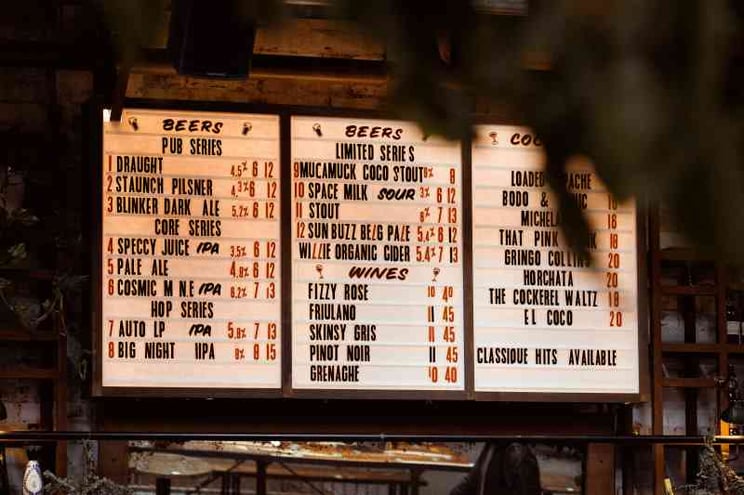 BEERS
PUB SERIES
1 DRAUGHT 4.5% 6 12
2 STAUNCH PILSNER 4.3% 6 12
3 BLINKER DARK ALE 5.2% 6 12
CORE SERIES
4 SPECCY JUICE IPA 3.5% 6 12
5 PALE ALE 4.8% 6 12
6 COSMIC M NE IPA 6.2% 7 13
HOP SERIES
7 AUTO LP IPA 5.8% 7 13
8 BIG NIGHT IIPA 8% 8 15
BEERS
LIMITED SERIES
9 MUCAMUCK COCO STOUT 8% 8
10 SPACE MILK SOUR 3% 6 12
11 STOUT 6% 7 13
12 SUN BUZZ BELG PALE 5.4% 6 12
WILLIE ORGANIC CIDER 5.4% 7 13
WINES
FIZZY ROSE 10 40
FRIULANO 11 45
SKINSY GRIS 11 45
PINOT NOIR 11 45
GRENACHE 10 40
LOADED
BODO &
THAT PINK 18
GRINGO 20
HORCHATA 20
THE COCKEREL WALTZ 18
EL COCO 20
CLASSIQUE HITS AVAILABLE